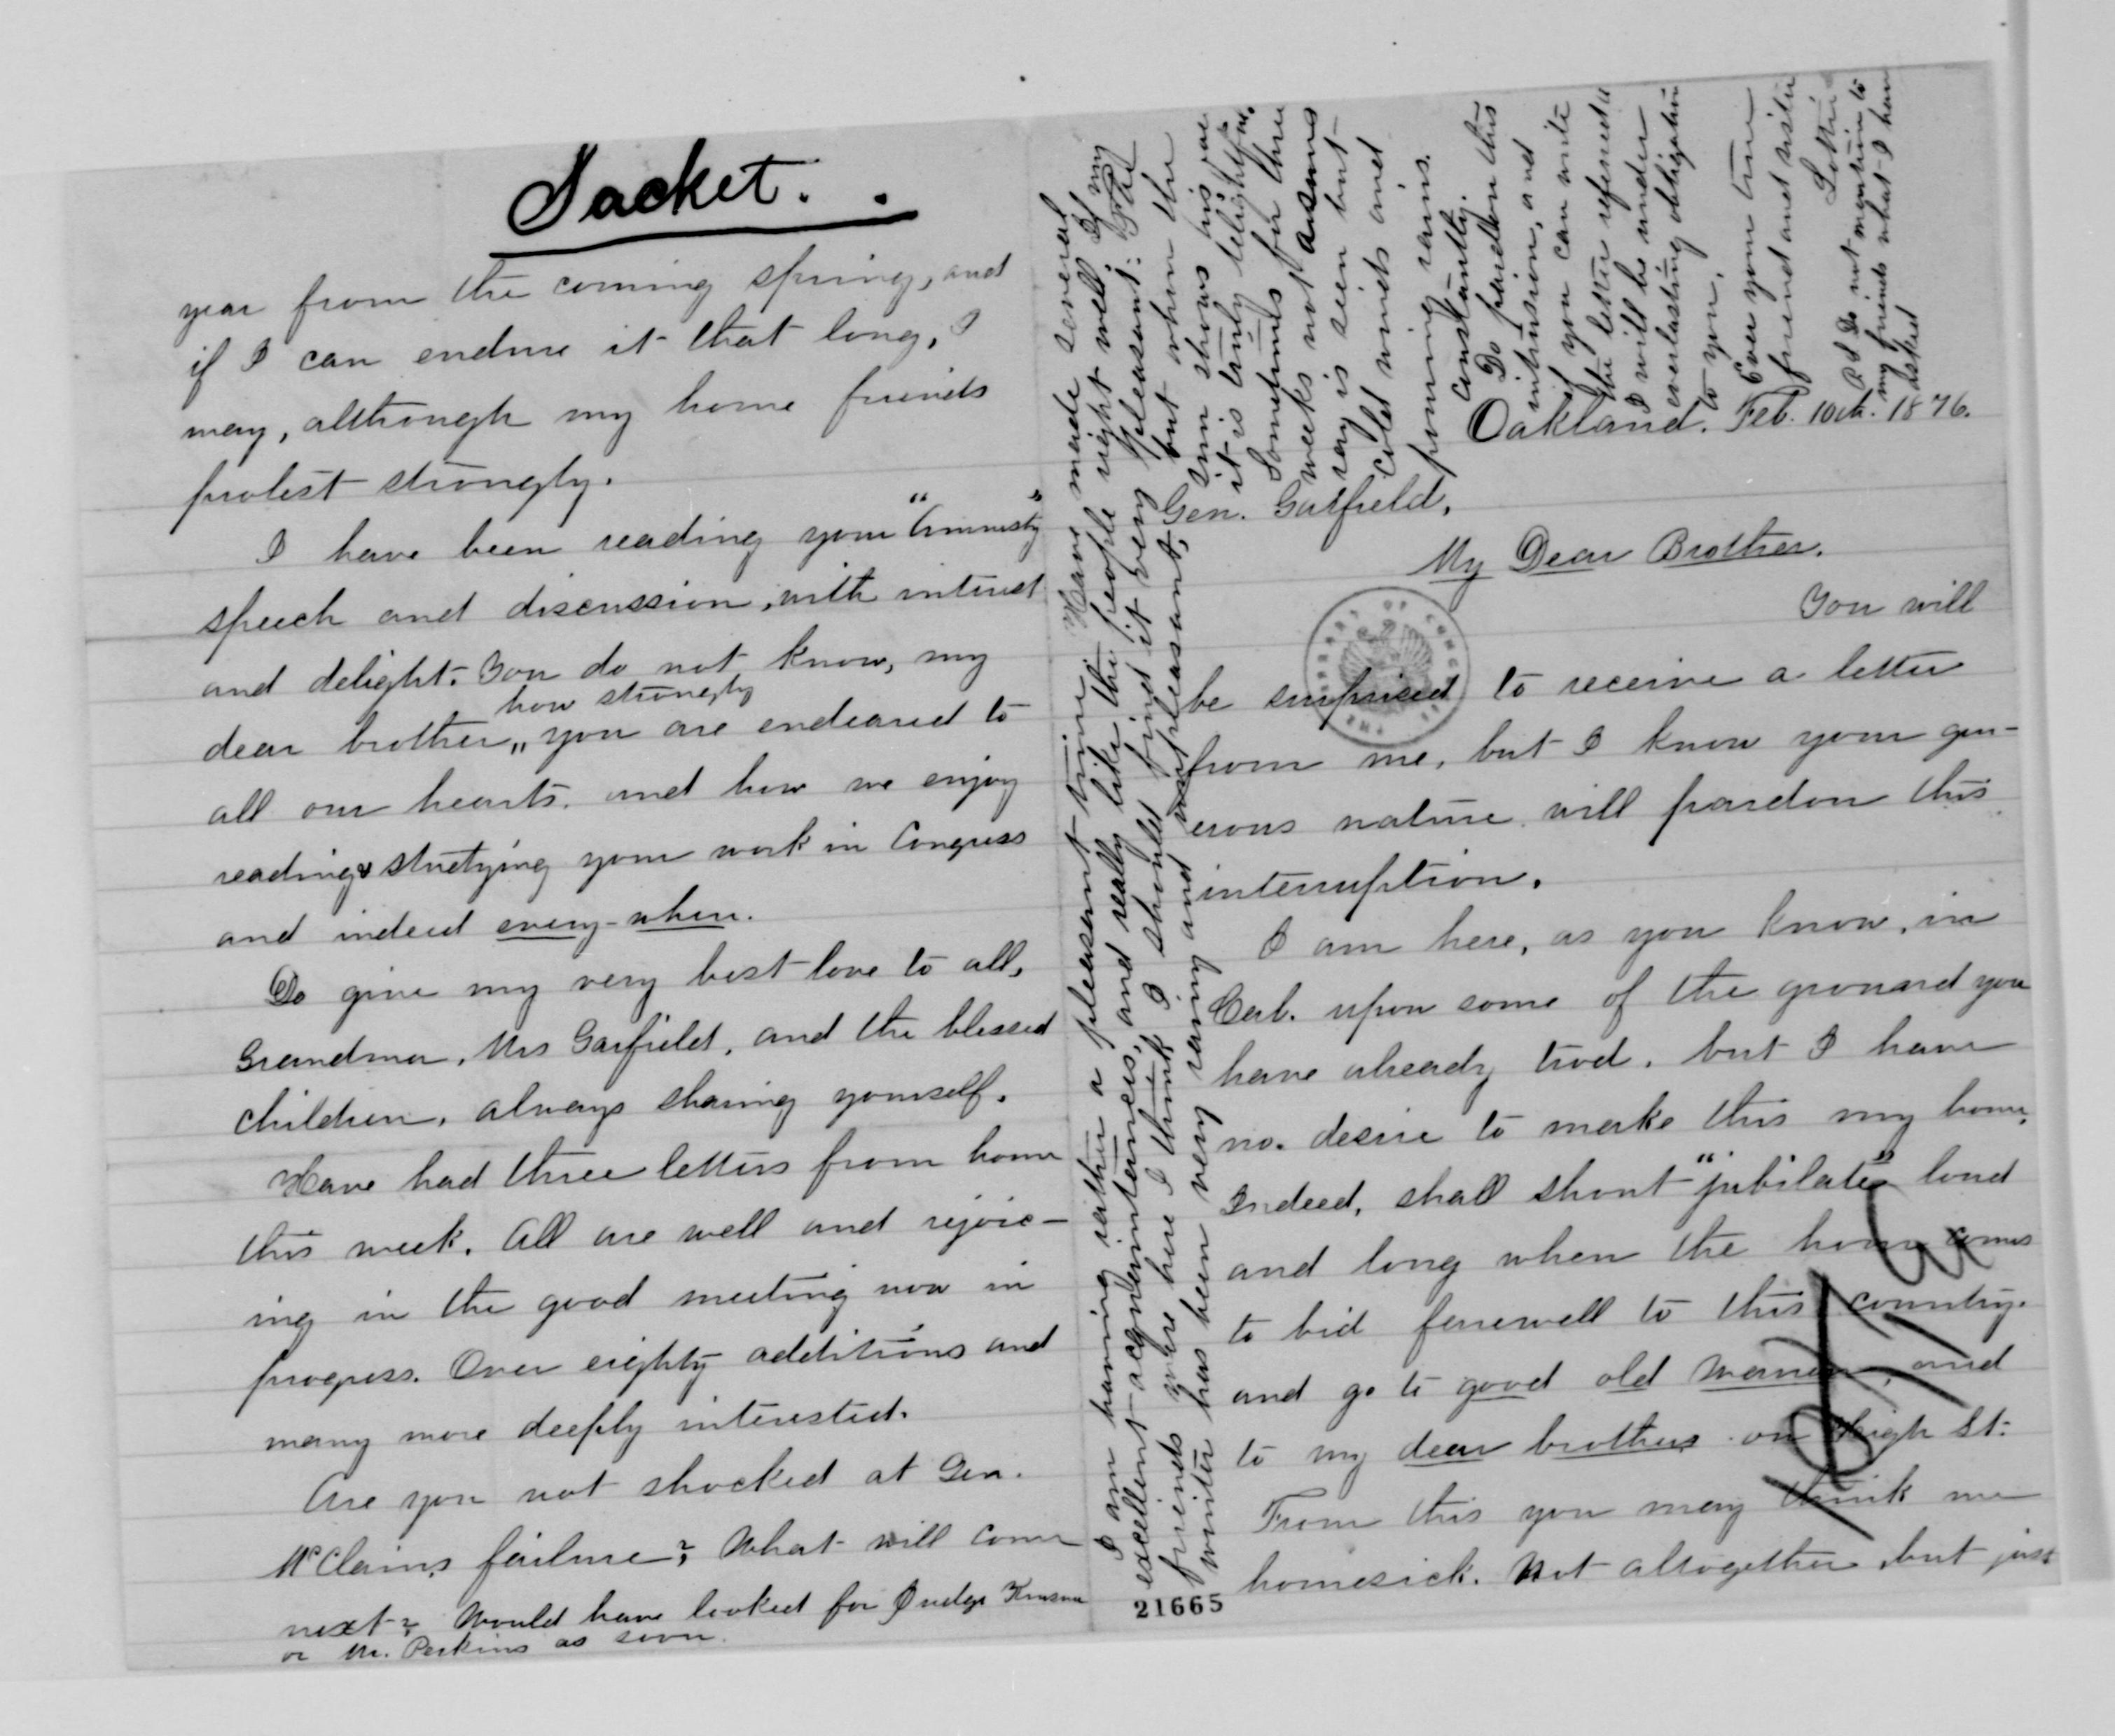 Sacket.
year from the coming spring, and
if I can endure it that long, I
may, although my home friends
protest strongly.
I have been reading your "Amnesty"
speech and discussion, with interest
and delight. You do not know, my
how strongly
dear brother, you are endeared to
all our hearts, and how we enjoy
reading & studying your work in Congress
and indeed every-where.
Do give my very best love to all,
Grandma, Mrs Garfield, and the blessed
children, always sharing yourself.
Have had three letters from home
this week. All are well and rejoic-
ing in the good meeting now in
progress. Over eighty additions and
many more deeply interested.
Are you not shocked at Gen.
McClains failure? What will come
next? Would have looked for Judge Kinsman
or Mr. Perkins as soon.
Oakland. Feb. 10th. 1876.
Gen. Garfield,
My Dear Brother.
You will
be surprised to receive a letter
from me, but I know your gen-
erous nature will pardon this
interruption.
I am here, as you know, in
Cal. upon some of the ground you
have already trod, but I have
no desire to make this my home.
Indeed, shall shout "jubilate" loud
and long when the hour comes
to bid farewell to this country.
and go to good old Warren, and
to my dear brothers on High St.
From this you may think me
homesick. Not altogether, but just
21665
I am having rather a pleasant time. Have made several
excellent acquaintances, and really like the people right well. If my
friends were here I think I should find it very pleasant. The
winter has been very rainy and unpleasant,
but when the
sun shows his rae
it is truly delightful.
Sometimes for three
weeks not a suns
ray is seen but
cold winds and
pouring rains.
constantly.
Do pardon this
intrusion, and
if you can write
the letter referred to
I will be under
everlasting obligation
to you.
Ever your true
friend and sister
Lottie
P.S Do not mention to
my friends what I have
asked
LIBRARY OF CONGRESS
THE